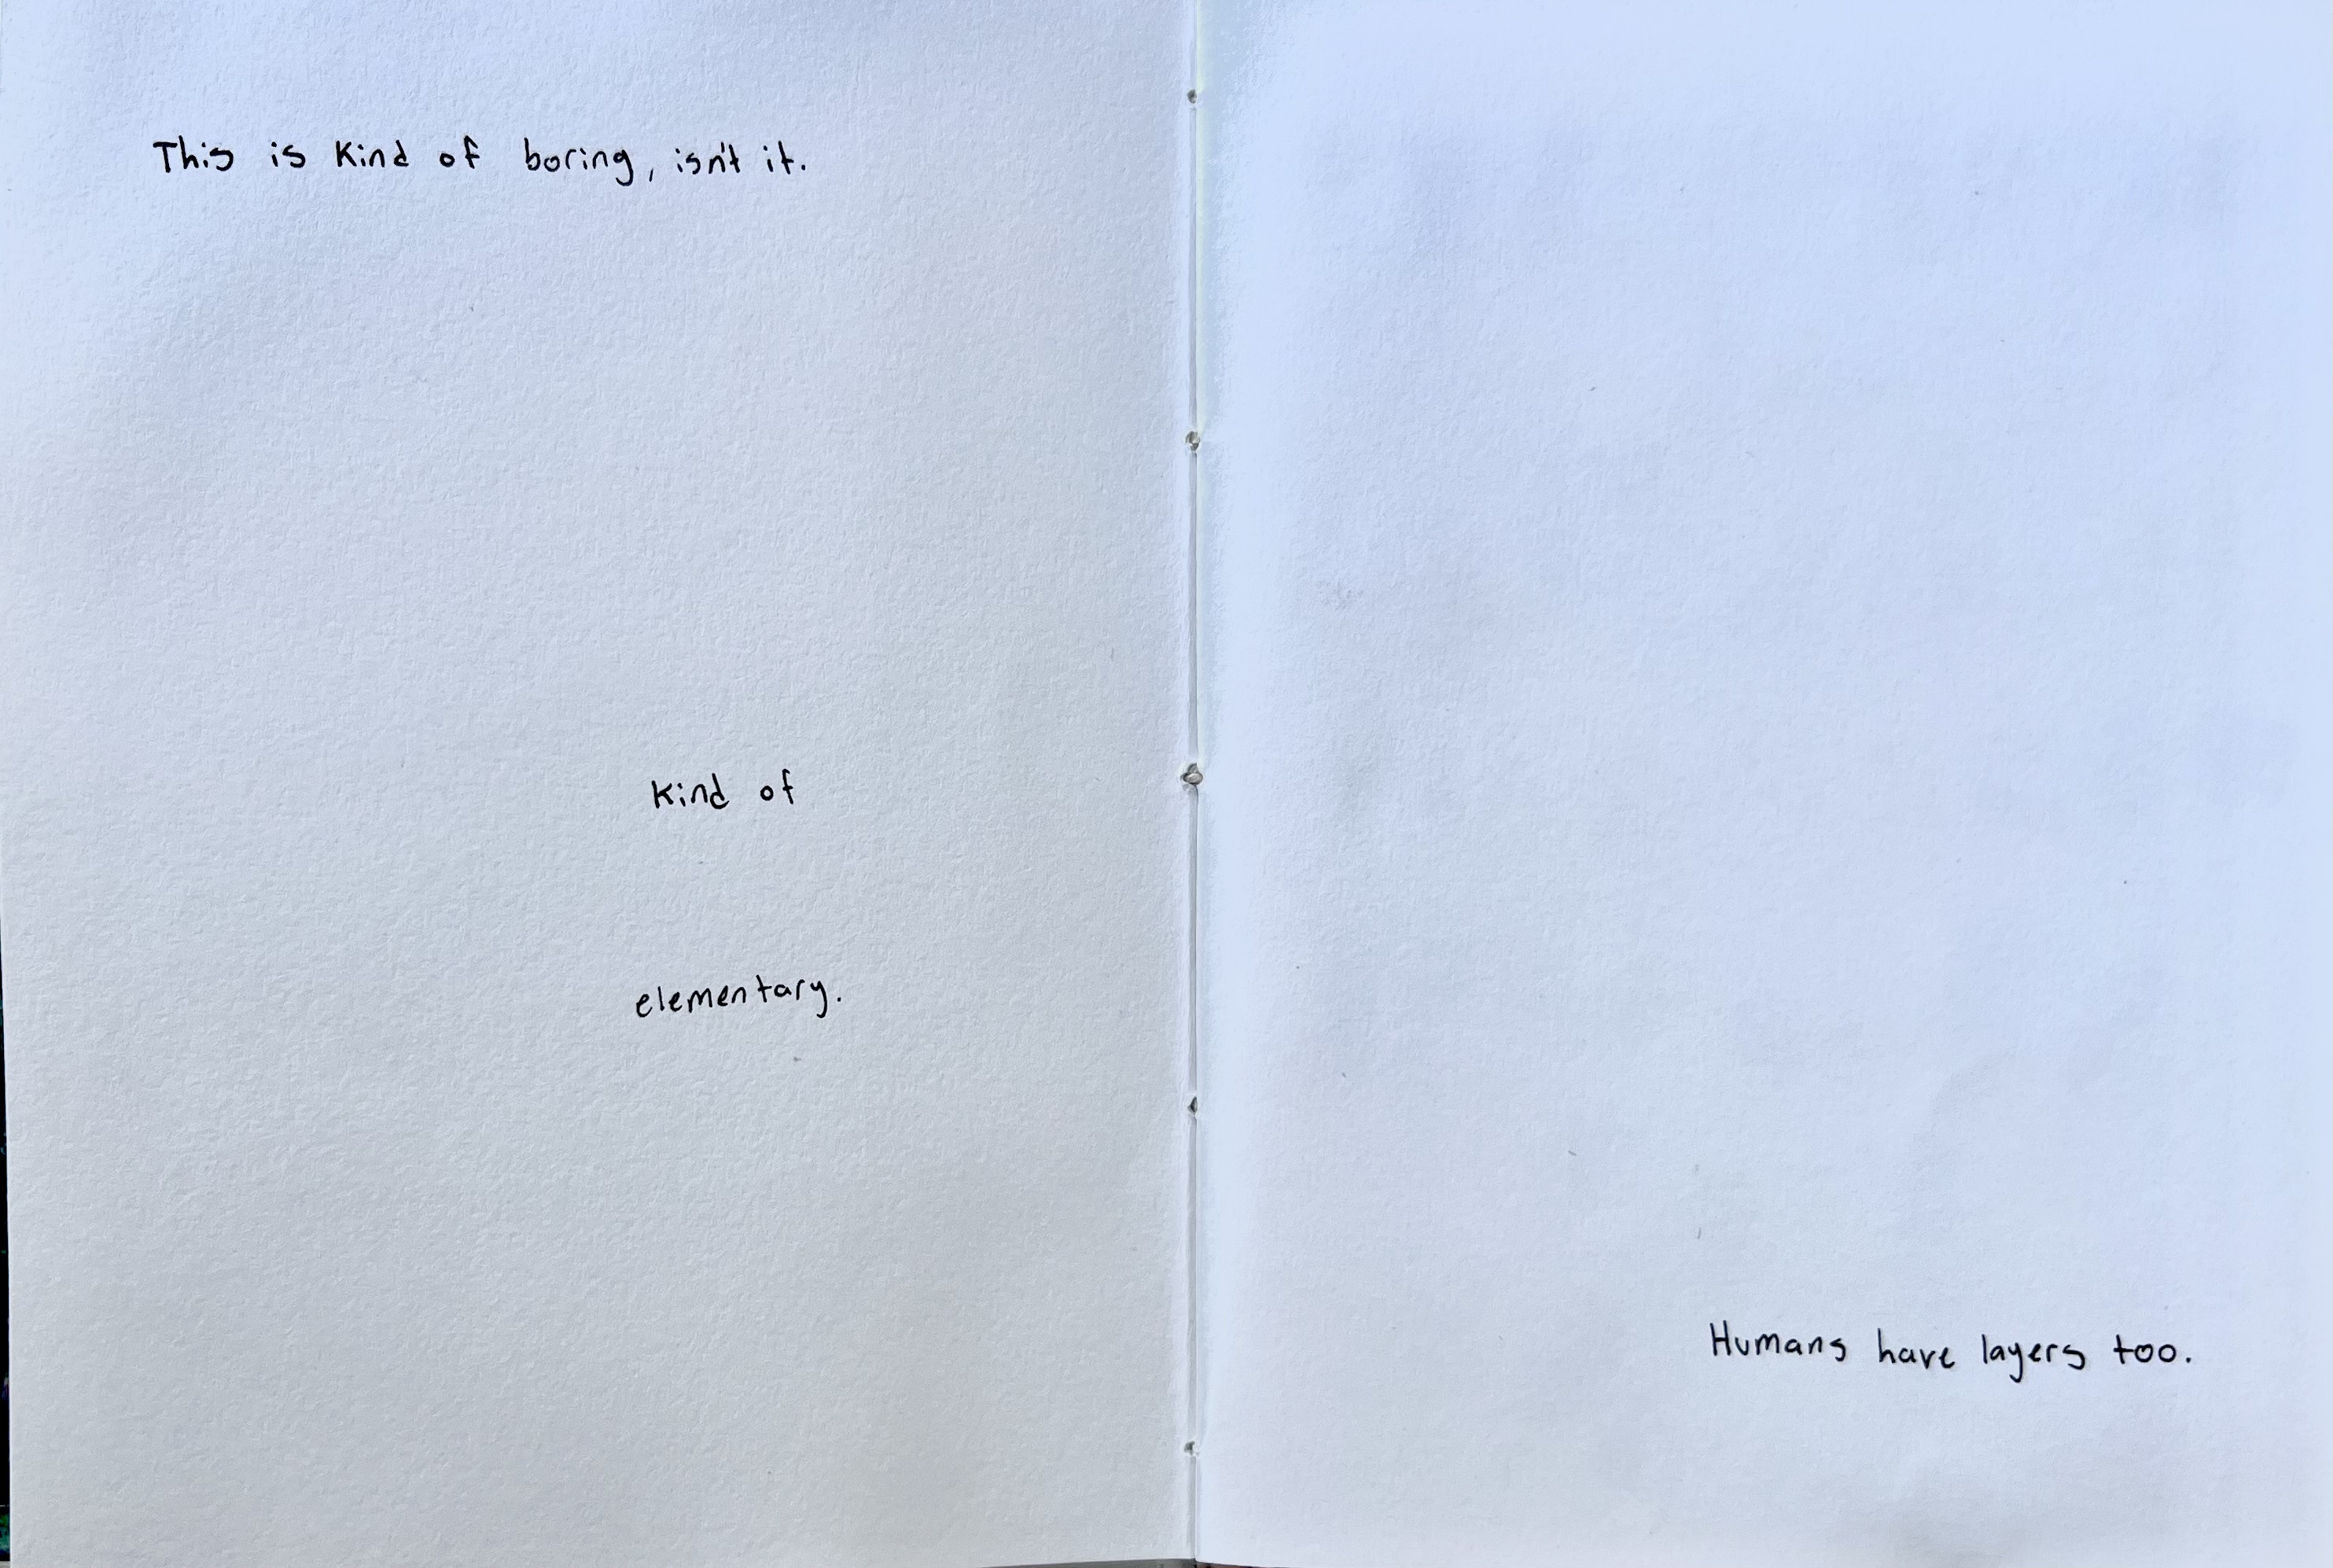 This is kind of boring, isn't it.
kind of
elementary.
Humans have layers too.